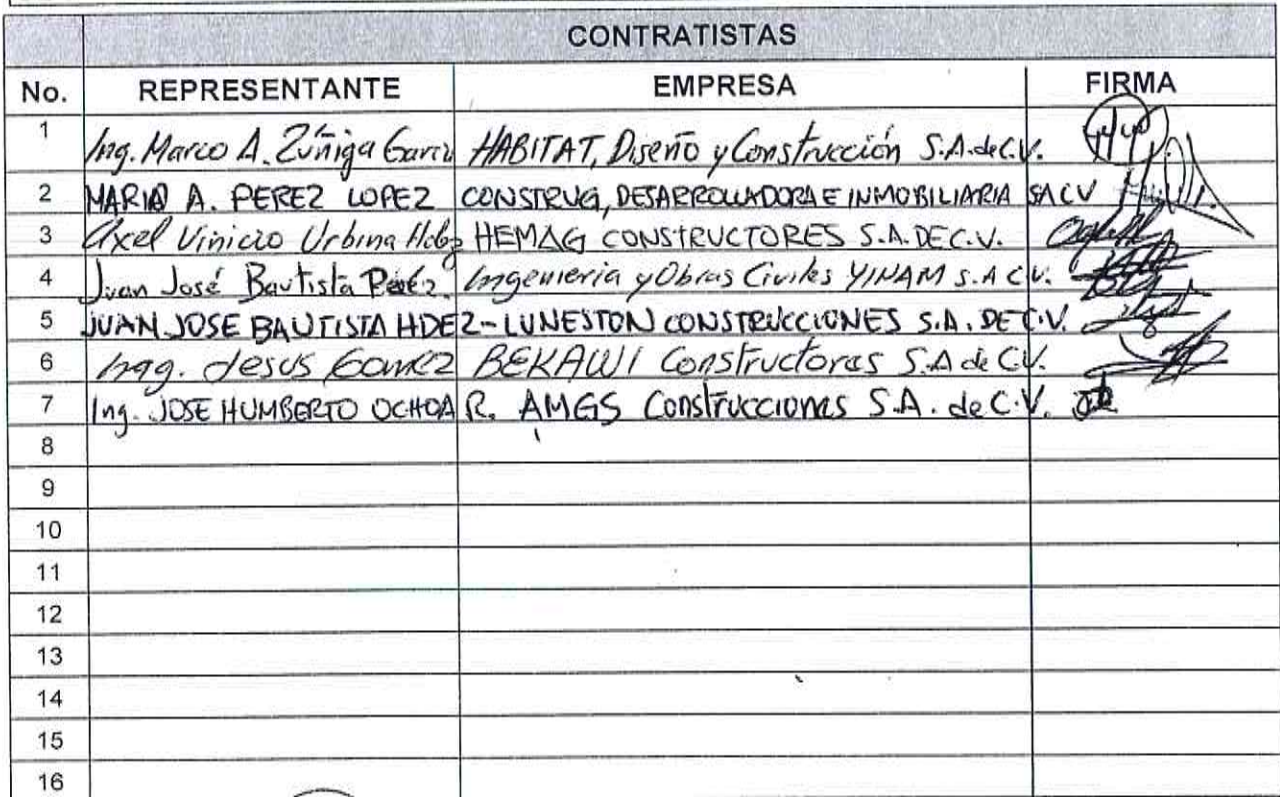 CONTRATISTAS
No. REPRESENTANTE EMPRESA FIRMA
1 Ing. Marco A. Zúñiga García HABITAT, Diseño y Construcción S.A. de C.V.
2 MARIO A. PEREZ LOPEZ CONSTRUG, DESARROLLADORA E INMOBILIARIA SA CV
3 Axel Vinicio Urbina HEMAG CONSTRUCTORES S.A. DE C.V.
4 Juan José Bautista Ingenieria y Obras Civiles YINAM S.A C.V.
5 JUAN JOSE BAUTISTA HDEZ - LUNESTON CONSTRUCCIONES S.A. DE C.V.
6 Jesus Gomez BEKAWI Constructoras S.A de C.V.
7 Ing. JOSE HUMBERTO OCHOA R. AMGS Construcciones S.A. de C.V.
8
9
10
11
12
13
14
15
16